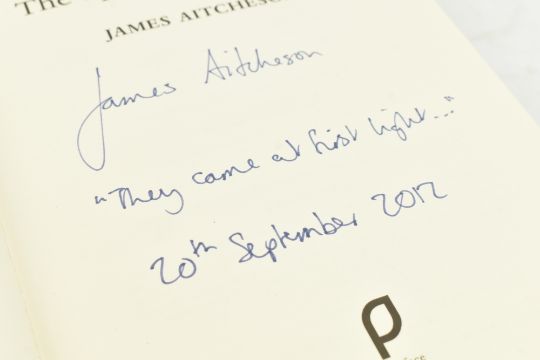 The
JAMES AITCHESO
James Aitcheson
"They came at first light..."
20th September 2012